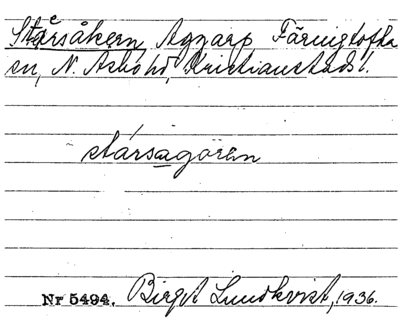 Stärsåkern, Agnarp Färingtofta
sn, N. Åsbo hd, Kristianstads l.
stársagören
Nr 5494. Birgit Lundkvist, 1936.